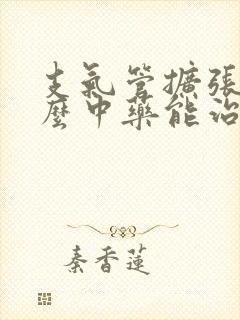 支氣管擴張
麼中藥能治
秦香蓮